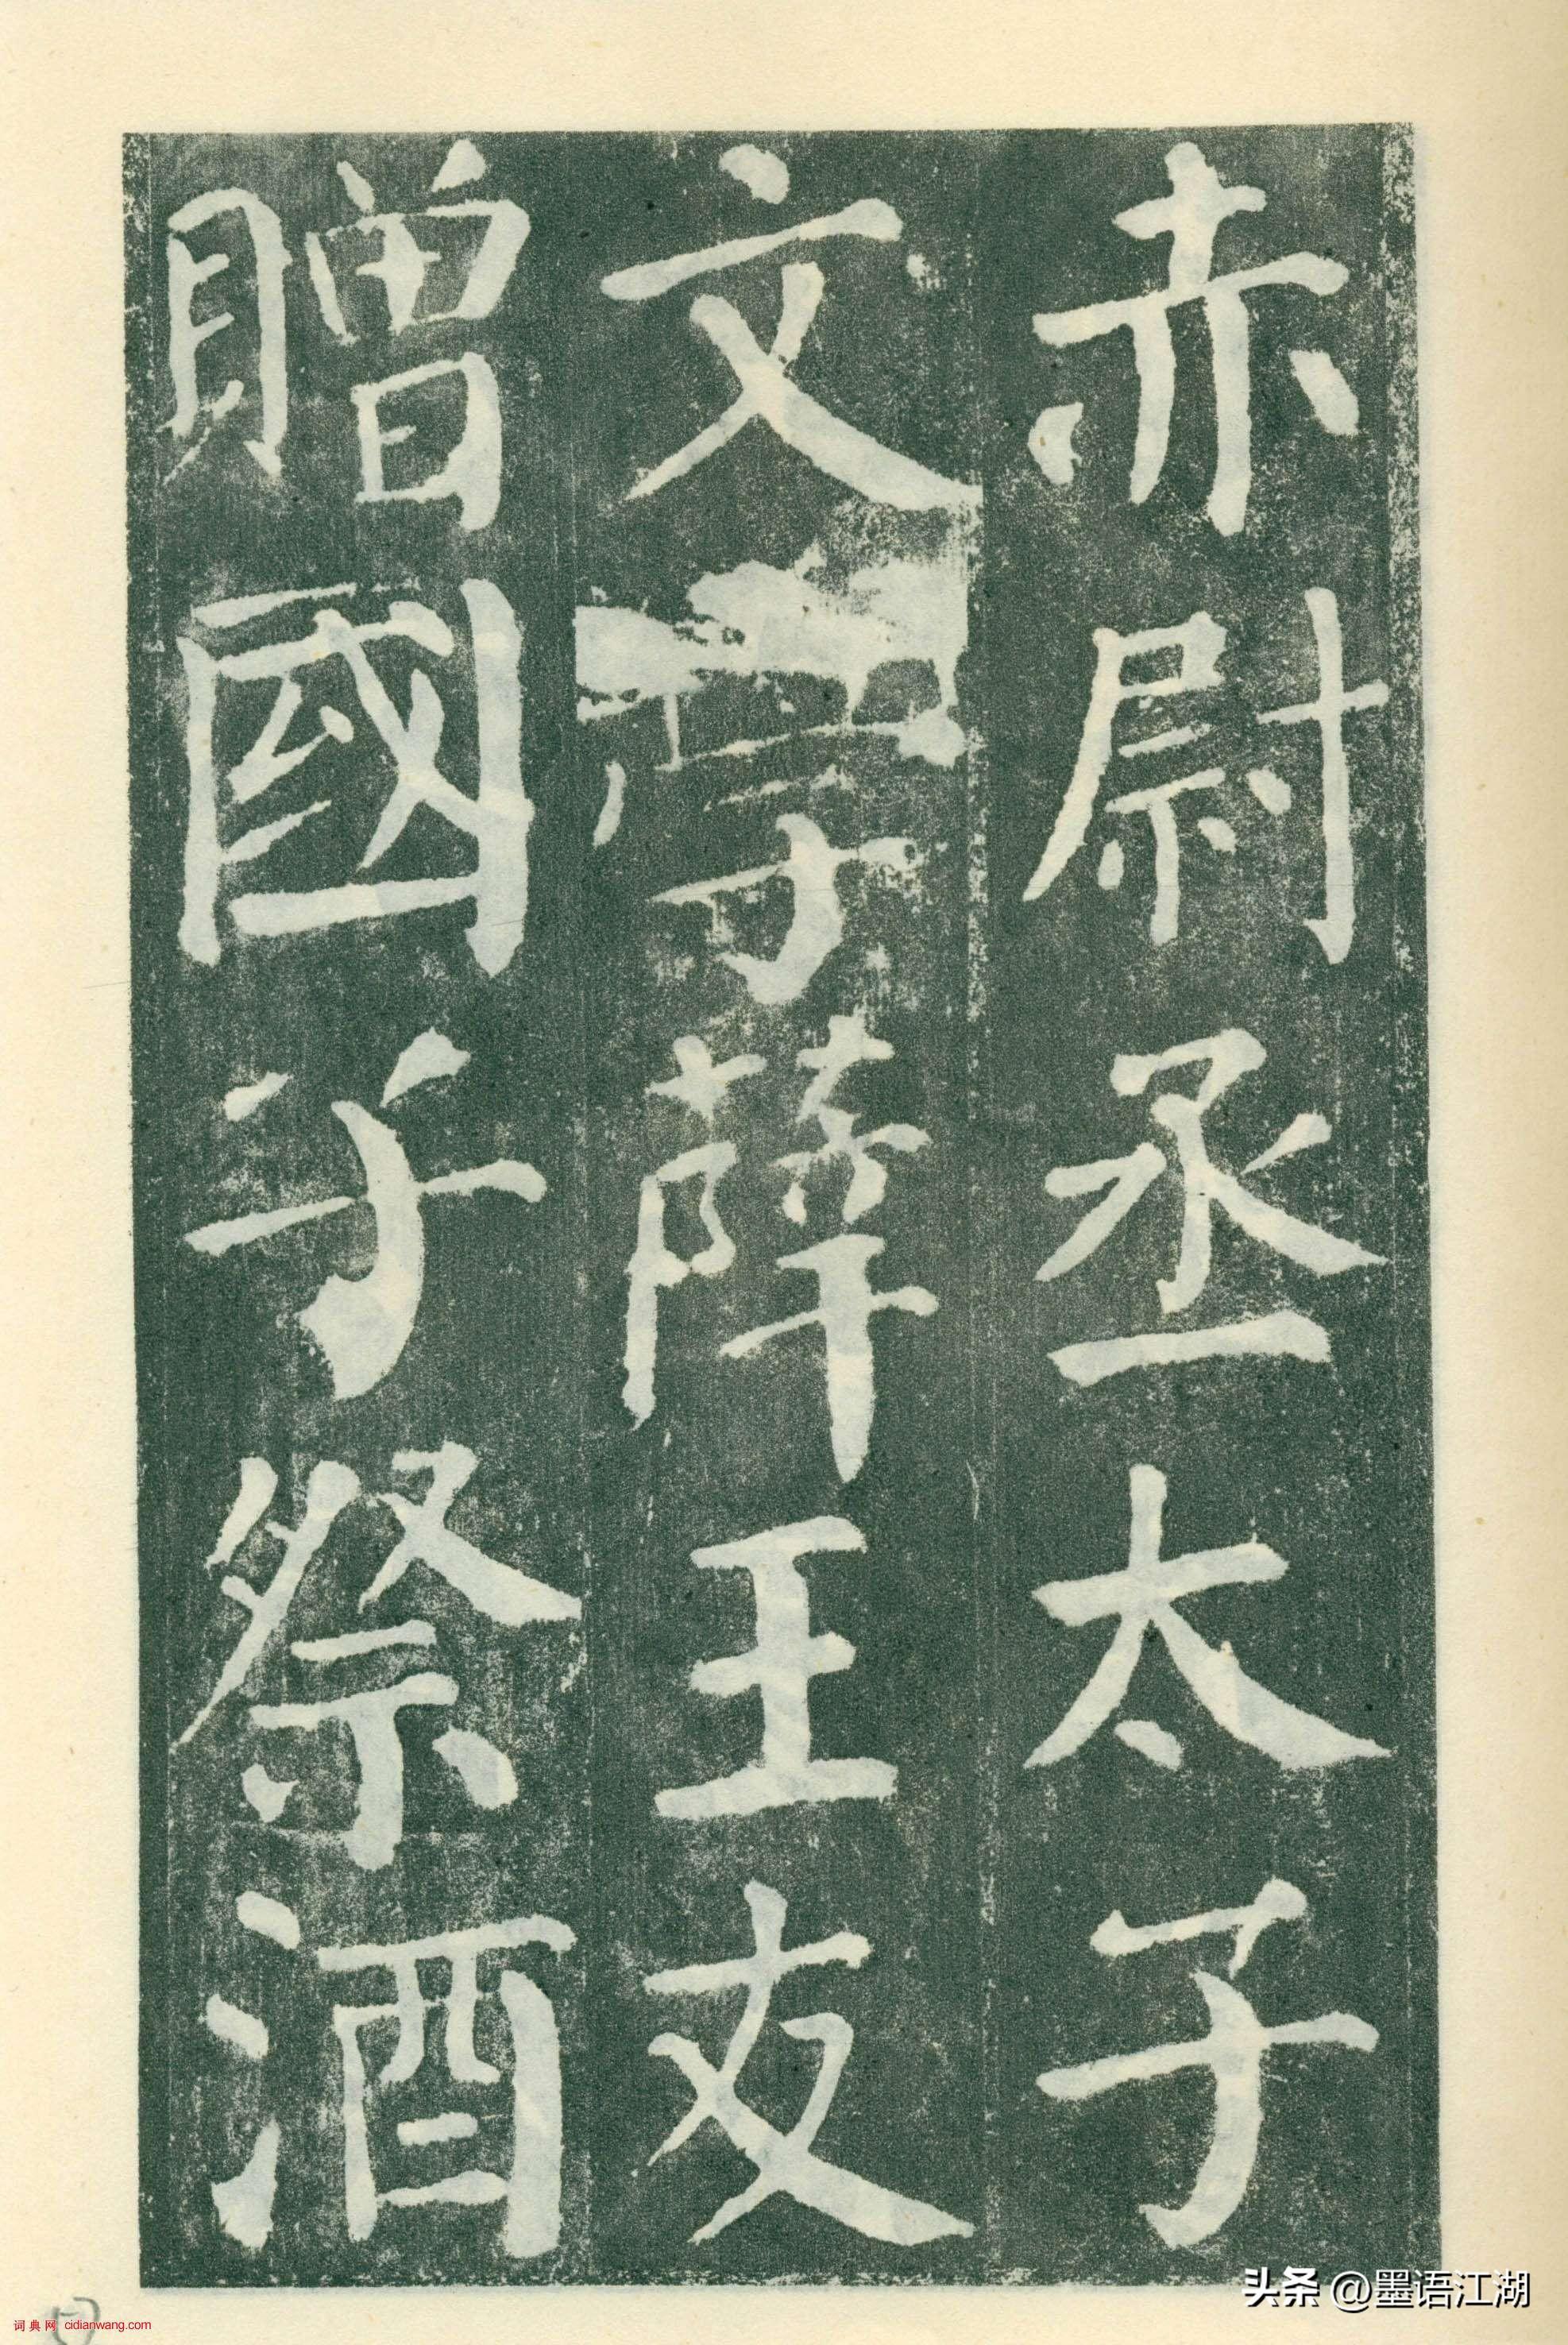 赤尉丞太子
文學薛王友
贈國子祭酒
头条 @墨语江湖
词典网 cidianwang.com